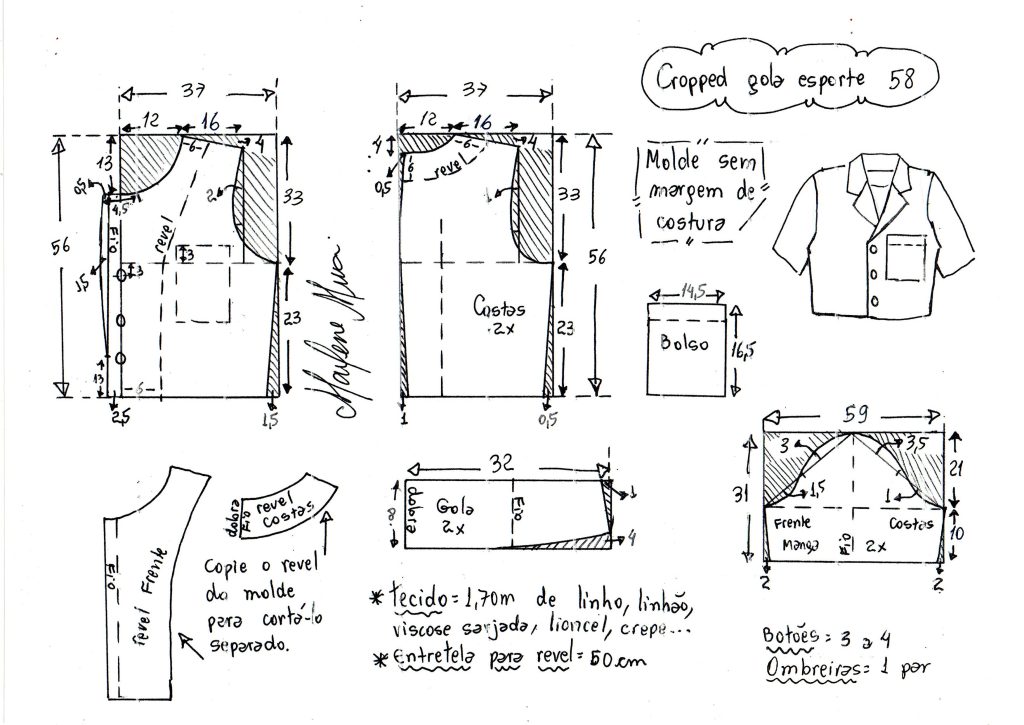 Cropped gola esporte 58
37
12 16
4
13
6
33
0,5
4,5
2
Fio
revel
56
3
1,5
3
23
13
6
2,5
1,5
Marlene Mukai
37
12 16
4
4
6
0,5
6
revel
1
33
56
Costas
2x
23
1
0,5
Molde sem
margem de
costura
14,5
Bolso
16,5
59
3
3,5
31
21
1,5
1
Frente
Costas
Manga
Fio
2x
10
2
2
32
8
dobra
Gola
2x
Fio
1
4
Fio
revel Frente
dobra
Fio
revel
costas
Copie o revel
do molde
para cortá-lo
separado.
* tecido = 1,70m de linho, linhão,
viscose sarjada, liocel, crepe...
* Entretela para revel = 50cm
Botões = 3 a 4
Ombreiras = 1 par